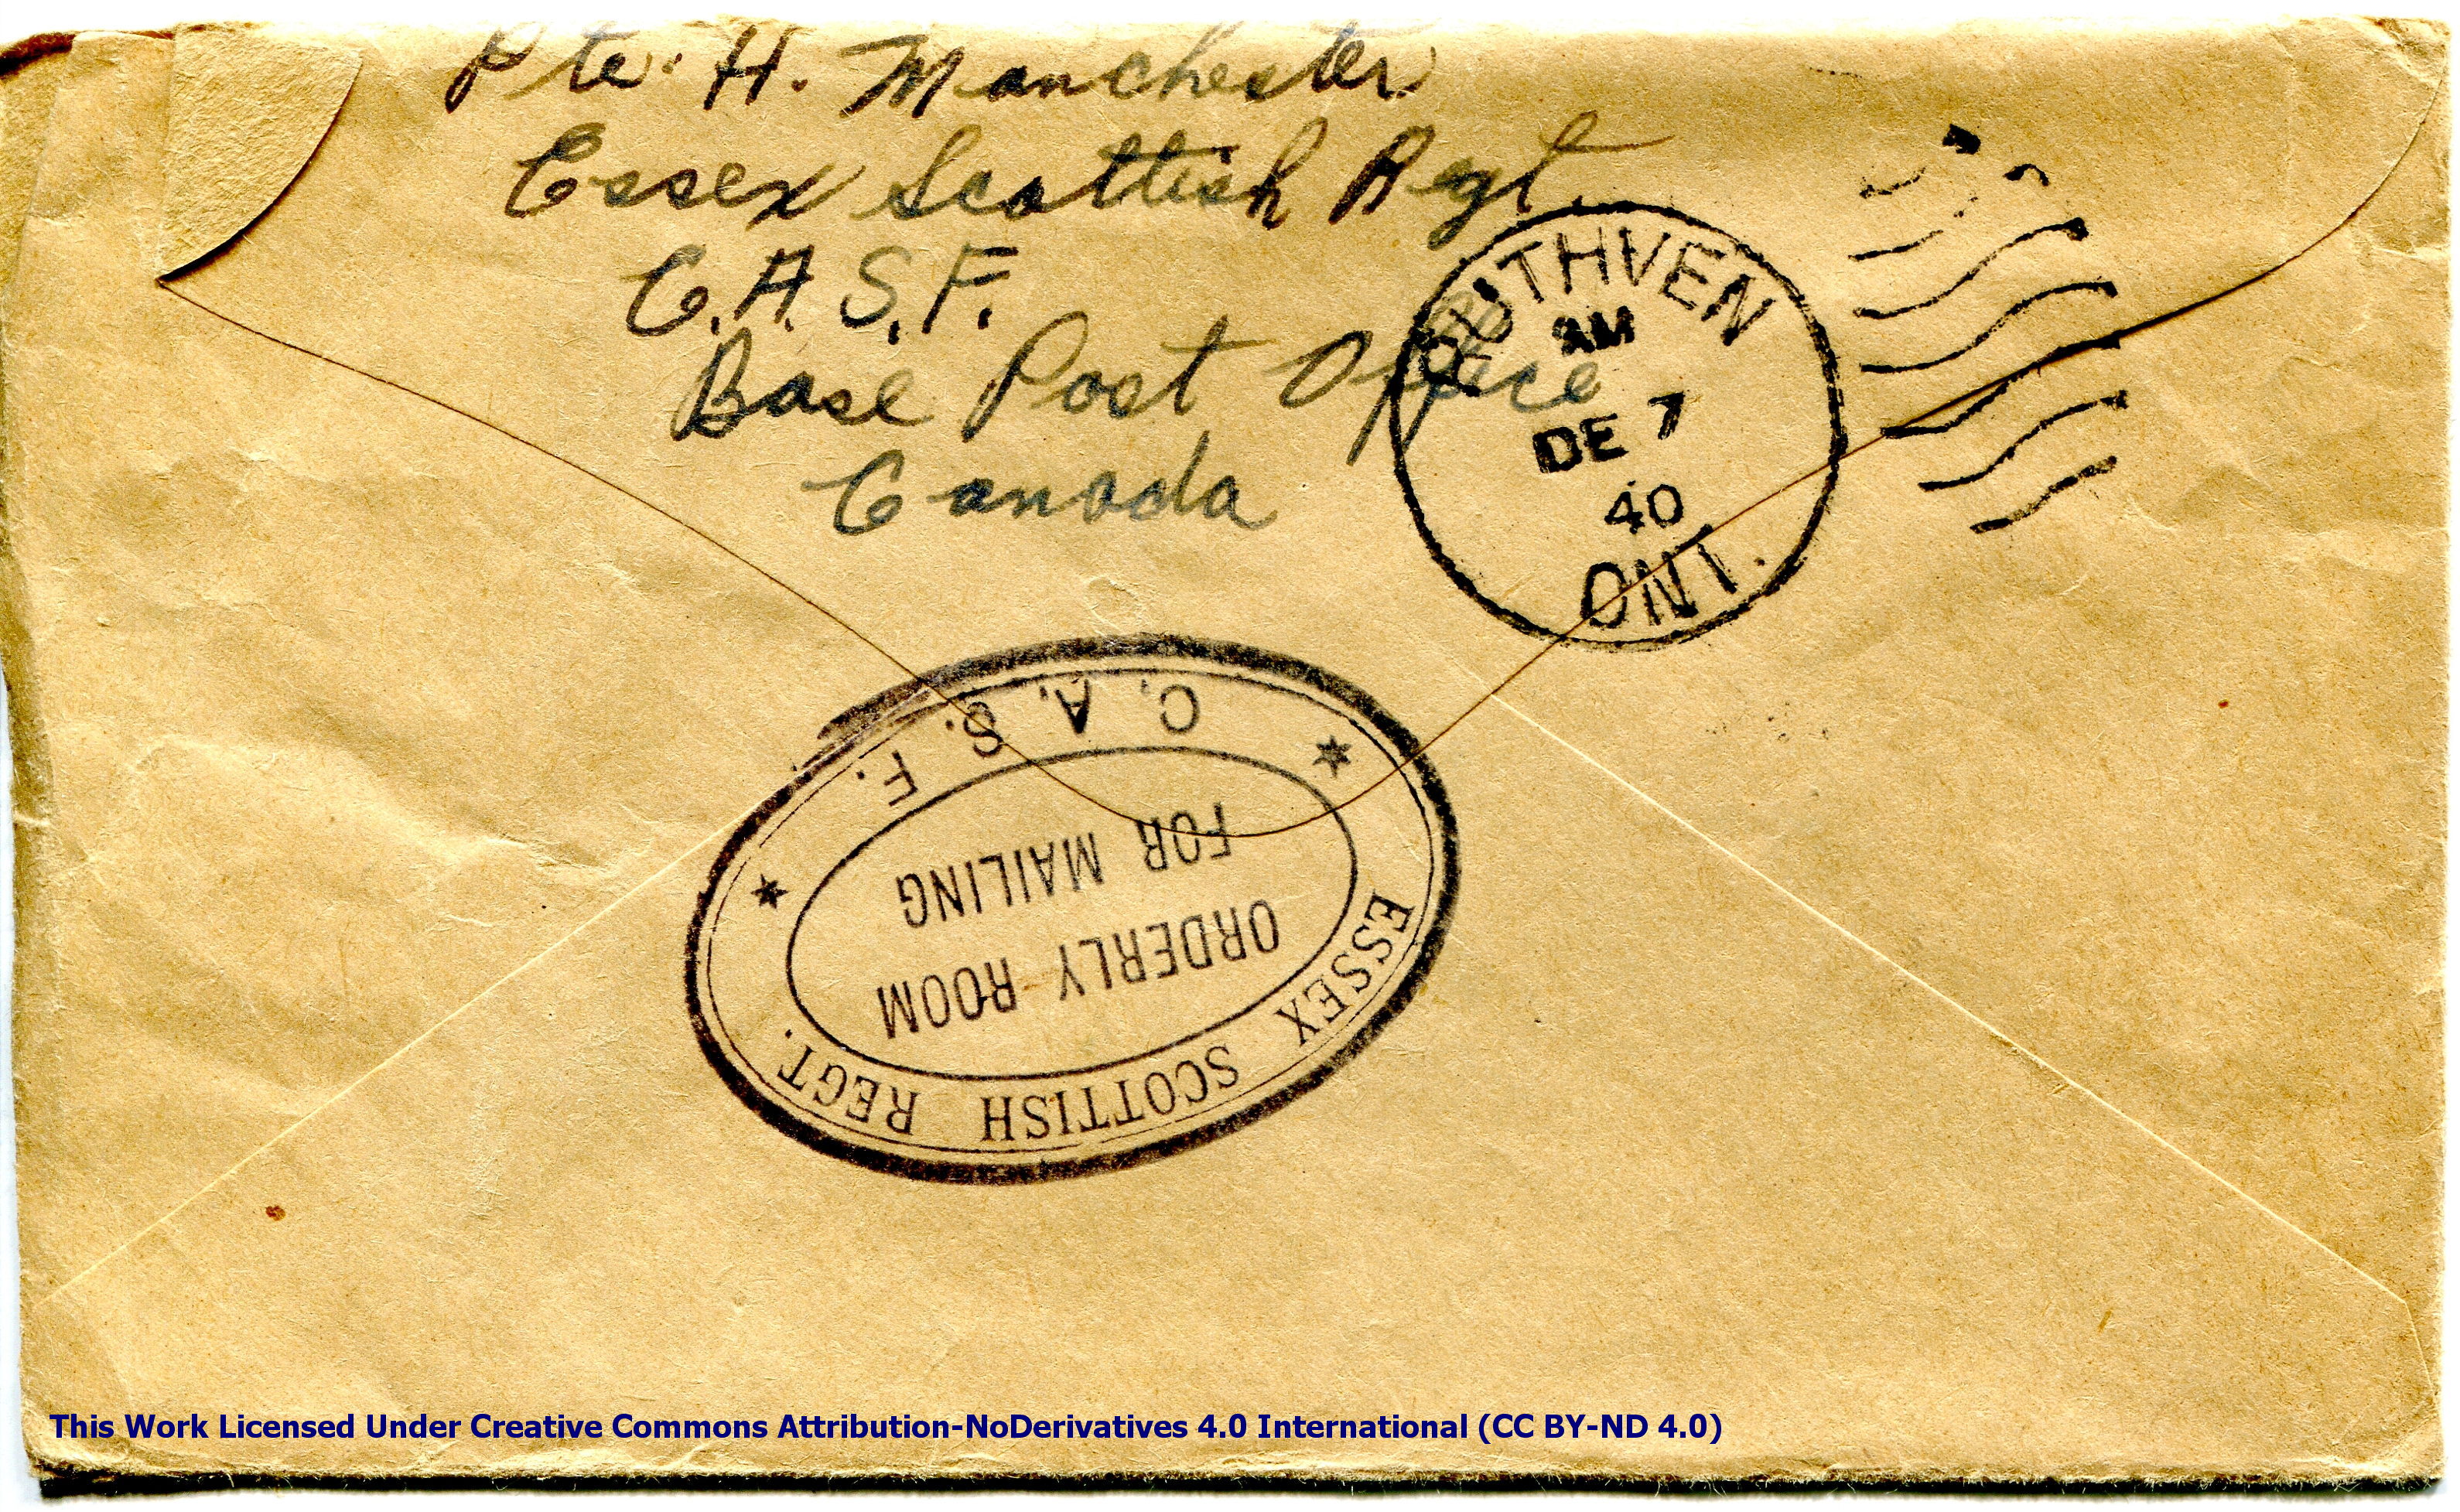 Pte. H. Manchester
Essex Scottish Regt.
C.A.S.F.
Base Post Office
Canada
RUTHVEN
AM
DE 7
40
ONT.
ESSEX SCOTTISH REGT.
ORDERLY ROOM
FOR MAILING
C. A. S. F.
This Work Licensed Under Creative Commons Attribution-NoDerivatives 4.0 International (CC BY-ND 4.0)